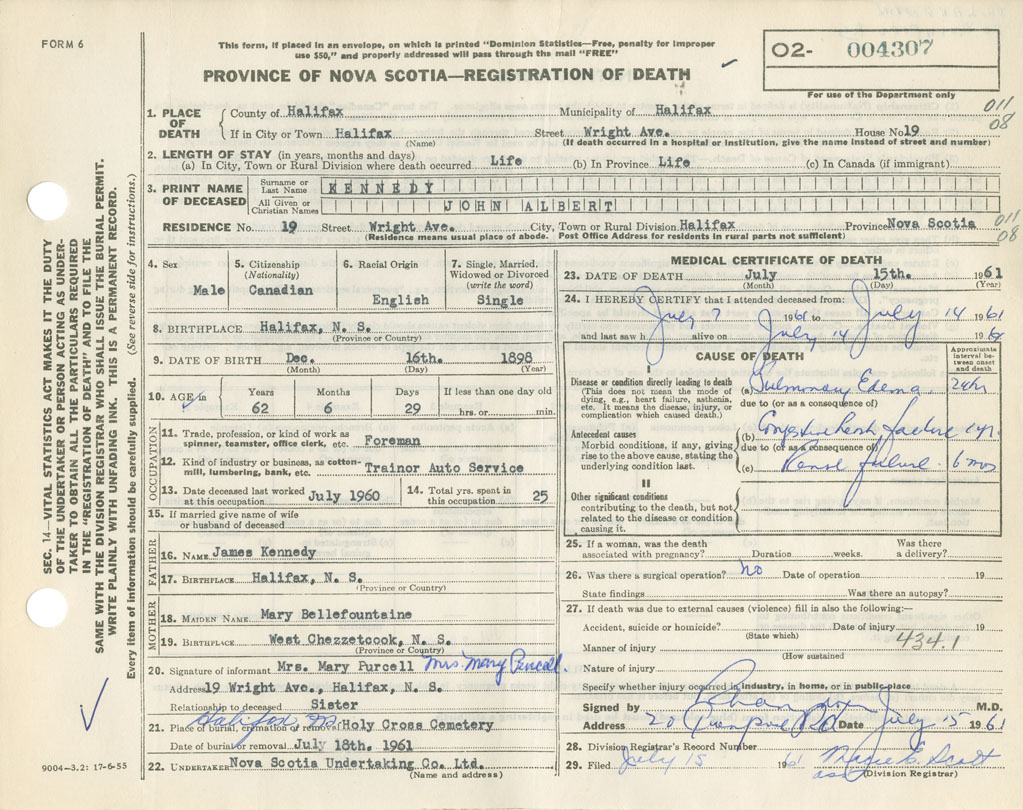 FORM 6
This form, if placed in an envelope, on which is printed "Dominion Statistics—Free, penalty for improper
use $50," and properly addressed will pass through the mail "FREE"
PROVINCE OF NOVA SCOTIA—REGISTRATION OF DEATH
O2- 004307
For use of the Department only
011
08
1. PLACE OF DEATH
County of Halifax Municipality of Halifax
If in City or Town Halifax Street Wright Ave. House No 19
(Name) (If death occurred in a hospital or institution, give the name instead of street and number)
2. LENGTH OF STAY (in years, months and days)
(a) In City, Town or Rural Division where death occurred Life (b) In Province Life (c) In Canada (if immigrant)
3. PRINT NAME OF DECEASED
Surname or Last Name KENNEDY
All Given or Christian Names JOHN ALBERT
RESIDENCE No. 19 Street Wright Ave. City, Town or Rural Division Halifax Province Nova Scotia
(Residence means usual place of abode. Post Office Address for residents in rural parts not sufficient)
011
08
4. Sex Male
5. Citizenship (Nationality) Canadian
6. Racial Origin English
7. Single, Married, Widowed or Divorced (write the word) Single
8. BIRTHPLACE Halifax, N. S.
(Province or Country)
9. DATE OF BIRTH Dec. 16th. 1898
(Month) (Day) (Year)
10. AGE in Years 62 Months 6 Days 29 If less than one day old hrs. or min.
OCCUPATION
11. Trade, profession, or kind of work as
spinner, teamster, office clerk, etc. Foreman
12. Kind of industry or business, as cotton-
mill, lumbering, bank, etc. Trainor Auto Service
13. Date deceased last worked
at this occupation July 1960
14. Total yrs. spent in
this occupation 25
15. If married give name of wife
or husband of deceased
FATHER
16. NAME James Kennedy
17. BIRTHPLACE Halifax, N. S.
(Province or Country)
MOTHER
18. MAIDEN NAME Mary Bellefountaine
19. BIRTHPLACE West Chezzetcook, N. S.
(Province or Country)
20. Signature of informant Mrs. Mary Purcell Mrs. Mary Purcell.
Address 19 Wright Ave., Halifax, N. S.
Relationship to deceased Sister
21. Place of burial, cremation or removal Halifax Holy Cross Cemetery
Date of burial or removal July 18th. 1961
22. UNDERTAKER Nova Scotia Undertaking Co. Ltd.
(Name and address)
MEDICAL CERTIFICATE OF DEATH
23. DATE OF DEATH July 15th. 1961
(Month) (Day) (Year)
24. I HEREBY CERTIFY that I attended deceased from:
July 7 1961 to July 14 1961
and last saw h alive on July 14 1961
CAUSE OF DEATH
Approximate interval between onset and death
I
Disease or condition directly leading to death
(This does not mean the mode of
dying, e.g., heart failure, asthenia,
etc. It means the disease, injury, or
complication which caused death.)
(a) Pulmonary Edema 24hr
due to (or as a consequence of)
Antecedent causes
Morbid conditions, if any, giving
rise to the above cause, stating the
underlying condition last.
(b) Congestive heart failure 1 yr.
due to (or as a consequence of)
(c) Renal failure 6 mos
II
Other significant conditions
contributing to the death, but not
related to the disease or condition
causing it.
25. If a woman, was the death Was there
associated with pregnancy? Duration weeks. a delivery?
26. Was there a surgical operation? no Date of operation 19
State findings Was there an autopsy?
27. If death was due to external causes (violence) fill in also the following:—
Accident, suicide or homicide? Date of injury 19
(State which)
Manner of injury 434.1
(How sustained)
Nature of injury
Specify whether injury occurred in industry, in home, or in public place
Signed by M.D.
Address 20 Rd Date July 15 1961
28. Division Registrar's Record Number
29. Filed July 15 1961 Scott
(Division Registrar)
SEC. 14—VITAL STATISTICS ACT MAKES IT THE DUTY
OF THE UNDERTAKER OR PERSON ACTING AS UNDER-
TAKER TO OBTAIN ALL THE PARTICULARS REQUIRED
IN THE "REGISTRATION OF DEATH" AND TO FILE THE
SAME WITH THE DIVISION REGISTRAR WHO SHALL ISSUE THE BURIAL PERMIT.
WRITE PLAINLY WITH UNFADING INK. THIS IS A PERMANENT RECORD.
Every item of information should be carefully supplied. (See reverse side for instructions.)
9004-3.2: 17-6-55